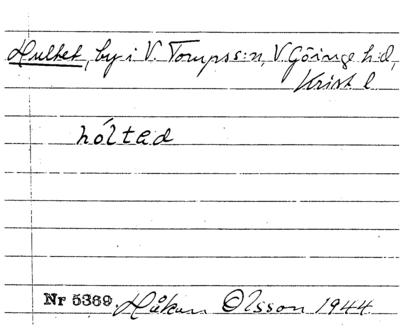 Hultet, by i V. Torups s:n, V. Göinge h:d,
Krist. l.
hóltəd
Nr 5369. Håkan Olsson 1944.